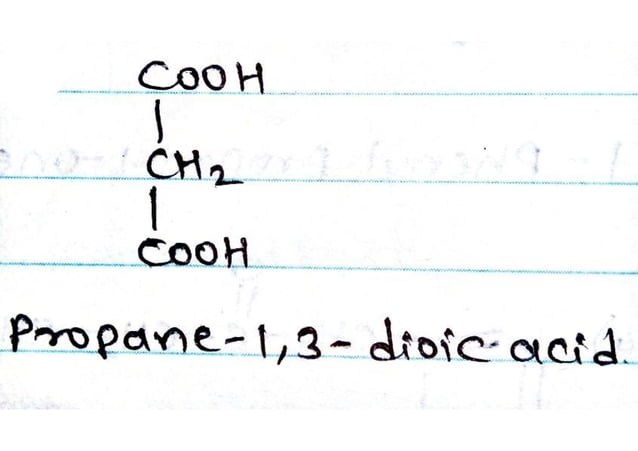 COOH
|
CH2
|
COOH
Propane-1,3-dioic acid.